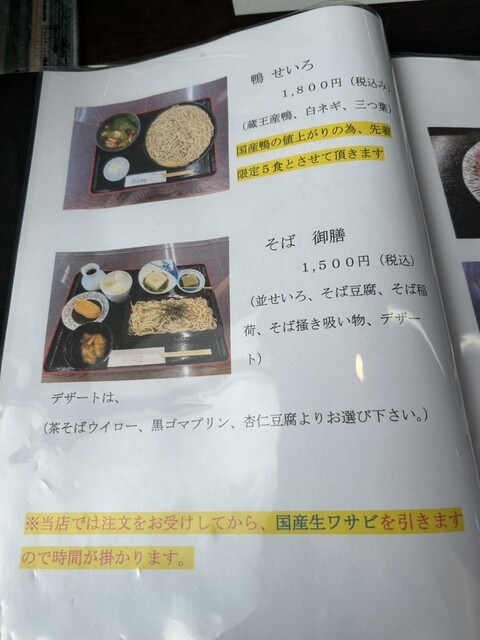 鴨 せいろ
１,８００円（税込み）
（蔵王産鴨、白ネギ、三つ葉）
国産鴨の値上がりの為、先着
限定５食とさせて頂きます
そば 御膳
１,５００円（税込）
（並せいろ、そば豆腐、そば稲
荷、そば掻き吸い物、デザー
ト）
デザートは、
（茶そばウイロー、黒ゴマプリン、杏仁豆腐よりお選び下さい。）
※当店では注文をお受けしてから、国産生ワサビを引きます
ので時間が掛かります。